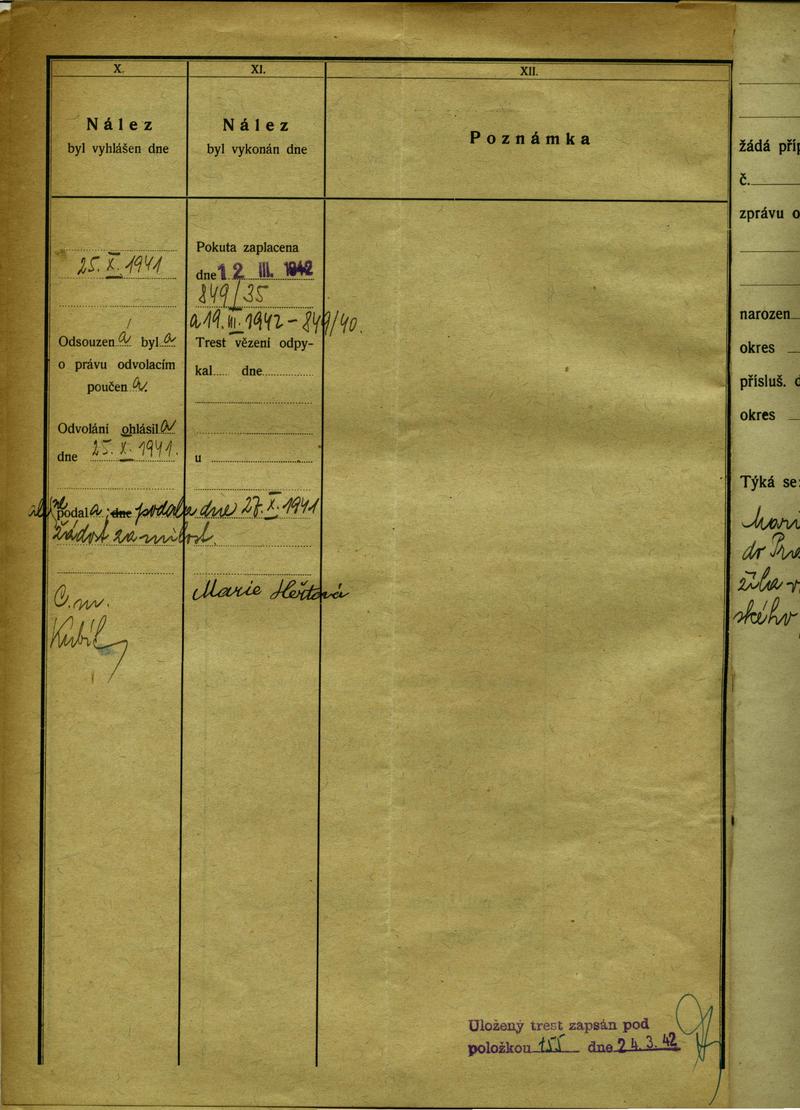 X.
Nález
byl vyhlášen dne
25. X. 1941
Odsouzen a byla
o právu odvolacím
poučena.
Odvolání ohlásila
dne 25. X. 1941.
podala; dne podala dne 27. X. 1941
žádost za milost.
Marie
XI.
Nález
byl vykonán dne
Pokuta zaplacena
dne 12 III. 1942
849/35
a 19. III. 1942 - 849/40.
Trest vězení odpy-
kal..... dne
u
XII.
Poznámka
Uložený trest zapsán pod
položkou 155 dne 24. 3. 42
žádá
č.
zprávu o
narozen
okres
přísluš.
okres
Týká se:
dr